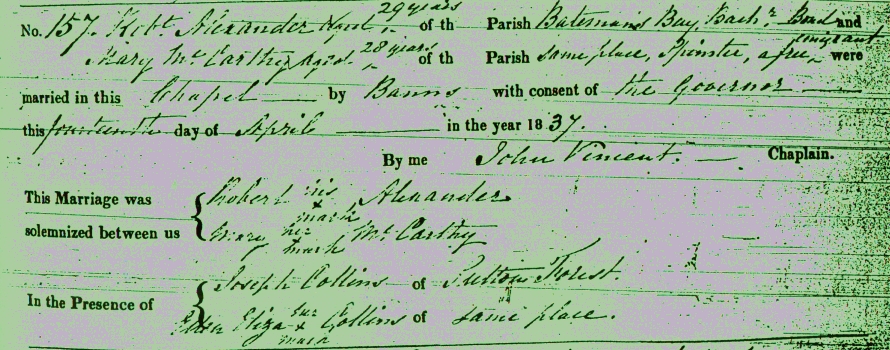 29 years
No. 157. Robt Alexander Aged of th Parish Bateman's Bay, Bachr. Bond and
28 years emigrant
Mary McCarthy Aged of th Parish same place, Spinster, a free were
married in this Chapel by Banns with consent of the Governor
this fourteenth day of April in the year 1837.
By me John Vincent. Chaplain.
This Marriage was solemnized between us { Robert his x mark Alexander
Mary her mark McCarthy
In the Presence of { Joseph Collins of Sutton Forest.
Eliza her x mark Collins of same place.